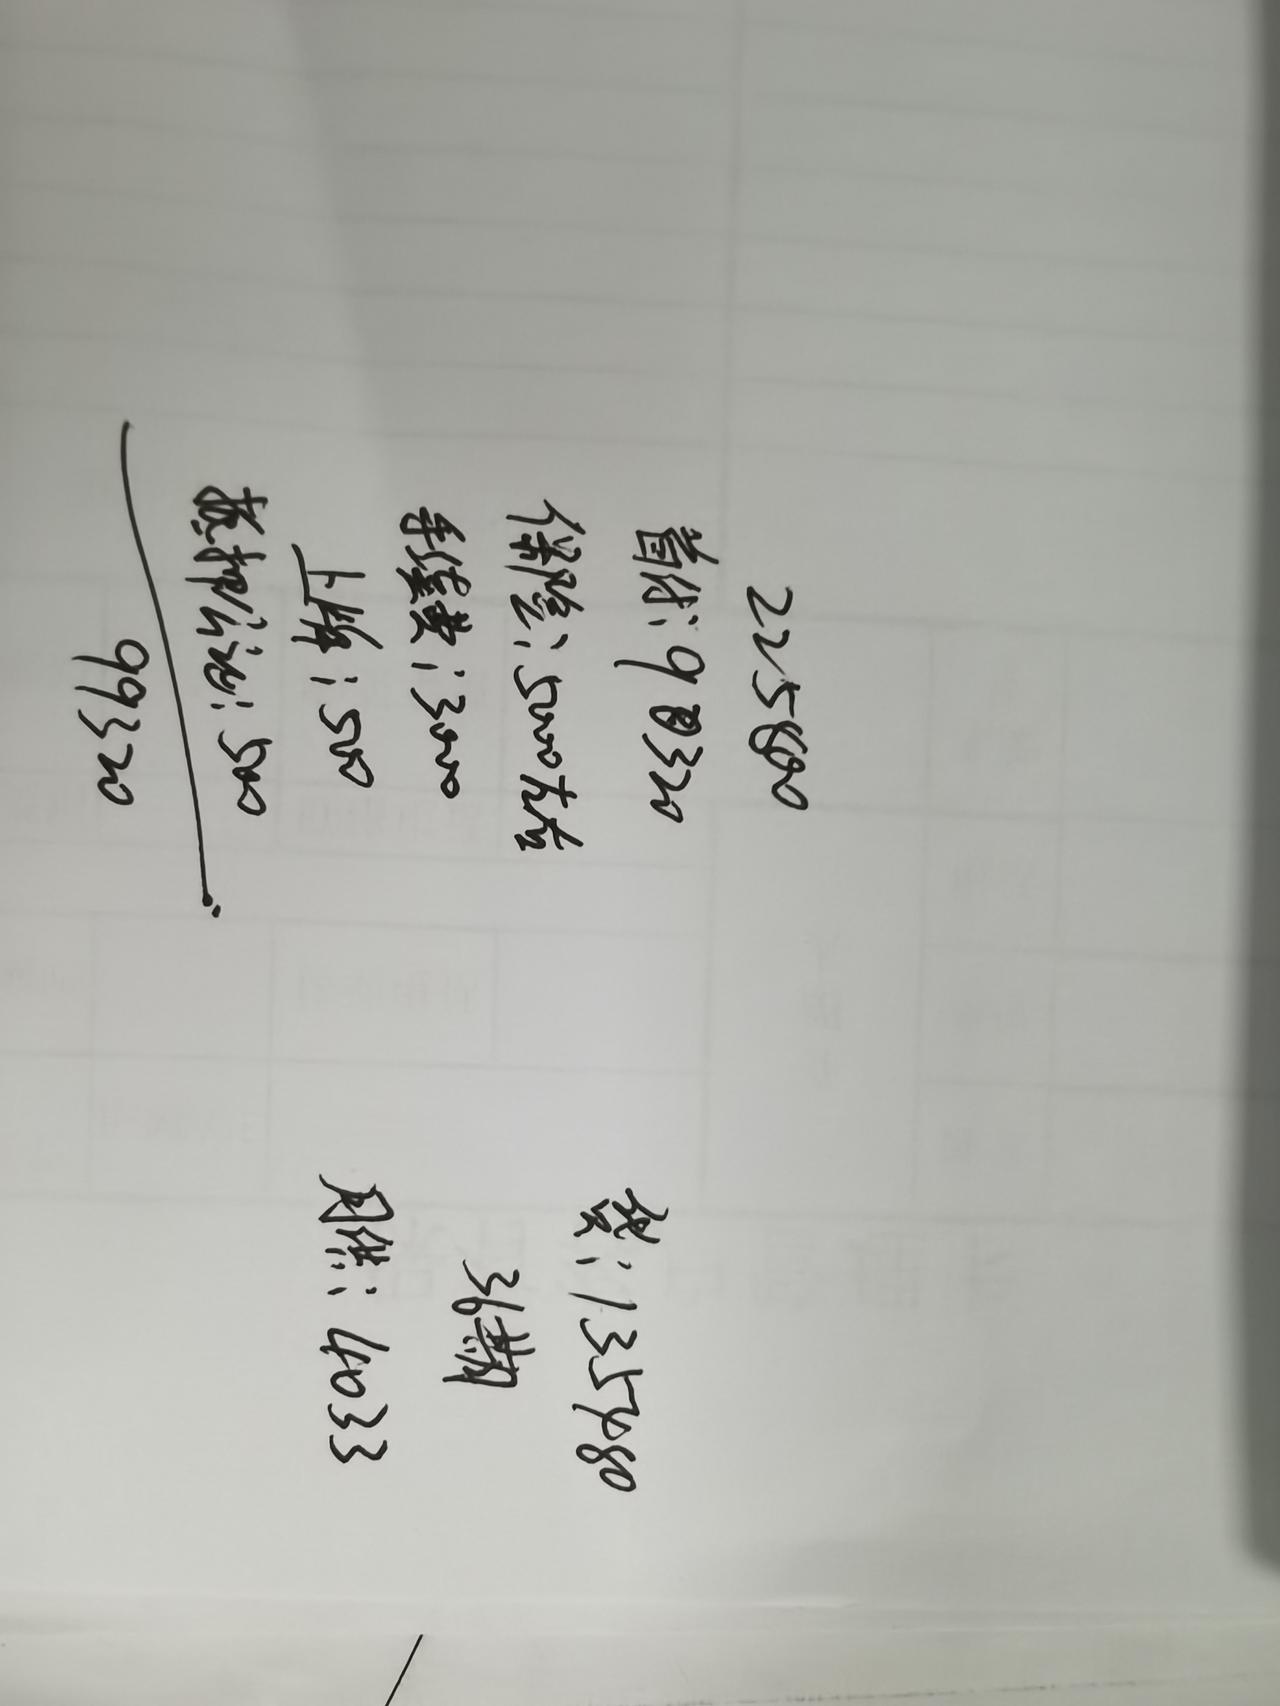 225800
首付：90320
保险：5000左右
手续费：3000
上牌：500
抵押：500
99320
贷：135480
36期
月供：4033